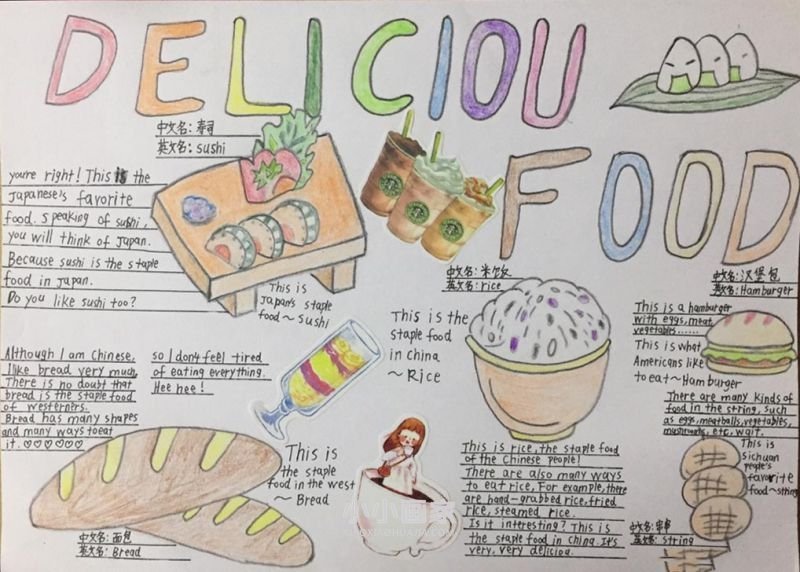 DELICIOU
FOOD
中文名: 寿司
英文名: sushi
youre right! This is the
Japanese's favorite
food. Speaking of sushi,
you will think of Japan.
Because sushi is the staple
food in Japan.
Do you like sushi too?
This is
Japan's staple
food~ Sushi
中文名: 米饭
英文名: rice
This is the
staple food
in china
~ Rice
中文名: 汉堡包
英文名: Hamburger
This is a hamburger
with eggs, meat,
vegetables......
This is what
Americans like
to eat~ Hamburger
There are many kinds of
food in the string, such
as eggs, meatballs, vegetables,
mushrooms, etc, wait.
This is
sichuan
people's
favorite
food~string
中文名: 串串
英文名: String
Although I am Chinese,
I like bread very much,
There is no doubt that
bread is the staple food
of westerners.
Bread has many shapes
and many ways to eat
it. ♡♡♡♡♡
so I don't feel tired
of eating everything.
Hee hee!
This is
the staple
food in the west
~ Bread
中文名: 面包
英文名: Bread
This is rice, the staple food
of the Chinese people!
There are also many ways
to eat rice, For example, there
are hand-grabbed rice, fried
rice, steamed rice.
Is it intresting? This is
the staple food in China. It's
very, very deliciou.
小小画家